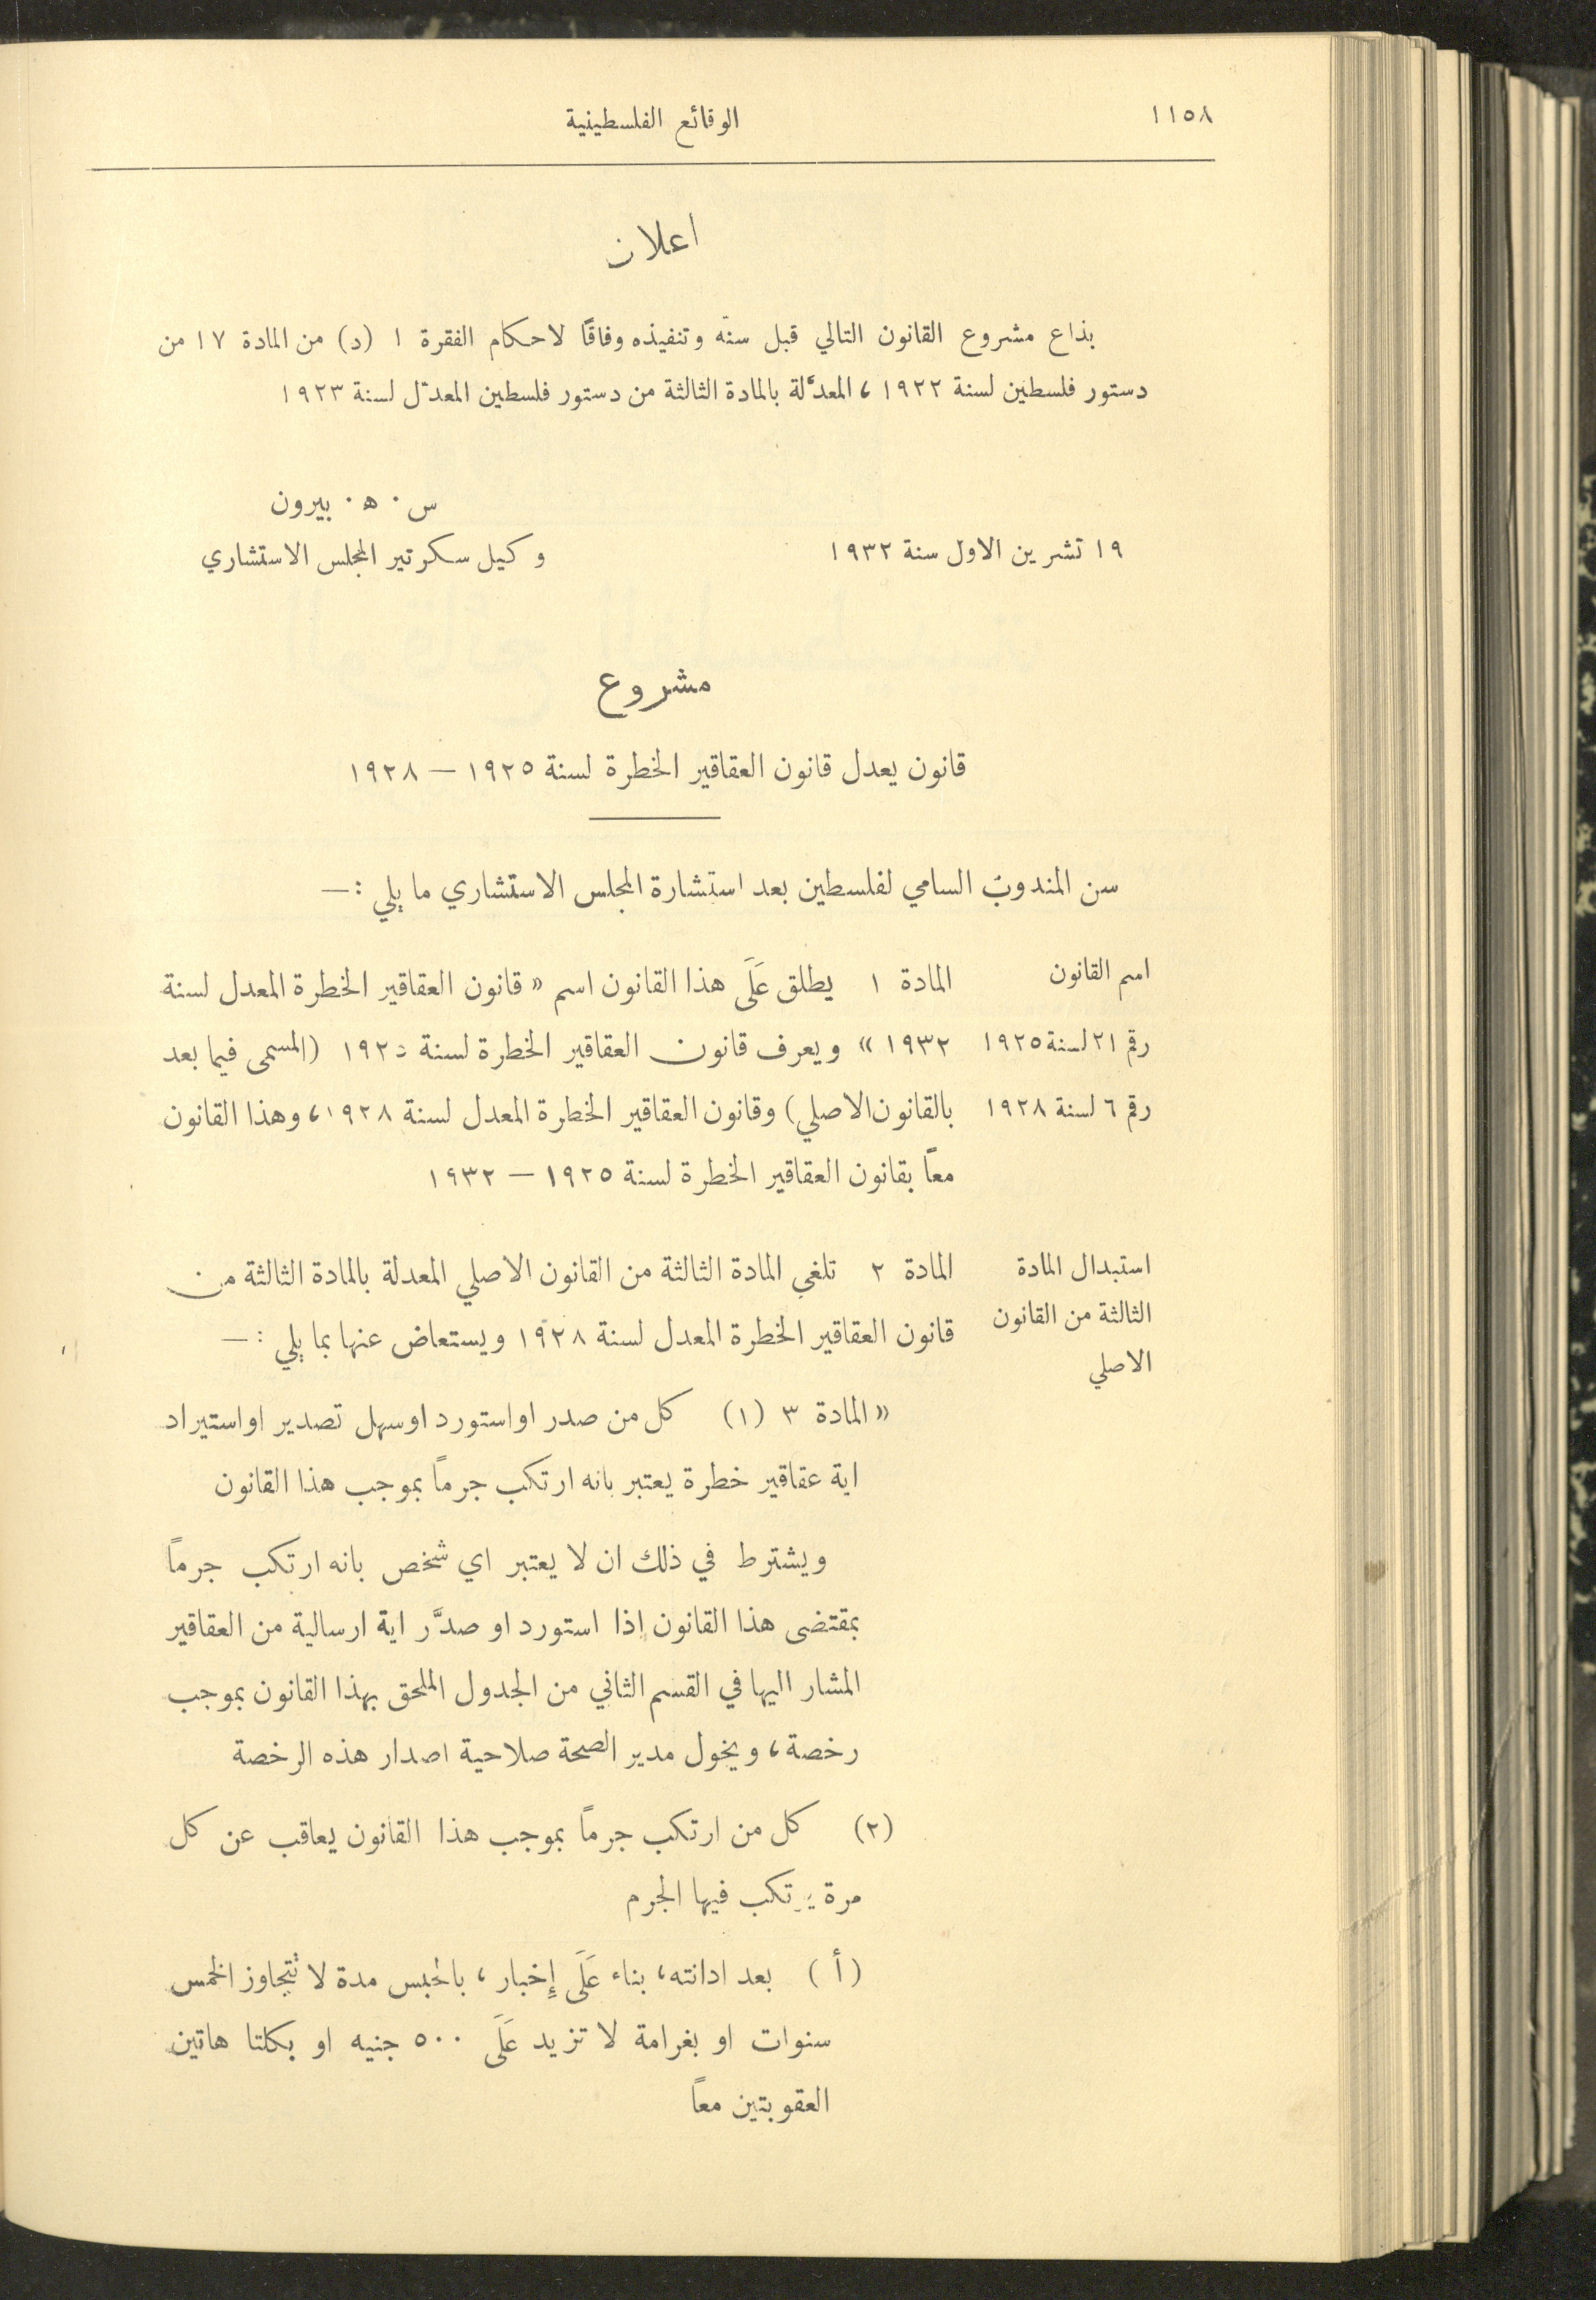 ١١٥٨
الوقائع الفلسطينية
اعلان
يذاع مشروع القانون التالي قبل سنّه وتنفيذه وفاقًا لاحكام الفقرة ١ (د) من المادة ١٧ من
دستور فلسطين لسنة ١٩٢٢، المعدَّلة بالمادة الثالثة من دستور فلسطين المعدّل لسنة ١٩٢٣
س. ه. بيرون
١٩ تشرين الاول سنة ١٩٣٢
وكيل سكرتير المجلس الاستشاري
مشروع
قانون يعدل قانون العقاقير الخطرة لسنة ١٩٢٥ – ١٩٢٨
سن المندوب السامي لفلسطين بعد استشارة المجلس الاستشاري ما يلي :—
اسم القانون
رقم ٢١ لسنة ١٩٢٥
رقم ٦ لسنة ١٩٢٨
المادة ١ يطلق عَلَى هذا القانون اسم « قانون العقاقير الخطرة المعدل لسنة
١٩٣٢ » ويعرف قانون العقاقير الخطرة لسنة ١٩٢٥ (المسمى فيما بعد
بالقانون الاصلي) وقانون العقاقير الخطرة المعدل لسنة ١٩٢٨، وهذا القانون
معًا بقانون العقاقير الخطرة لسنة ١٩٢٥ – ١٩٣٢
استبدال المادة
الثالثة من القانون
الاصلي
المادة ٢ تلغى المادة الثالثة من القانون الاصلي المعدلة بالمادة الثالثة من
قانون العقاقير الخطرة المعدل لسنة ١٩٢٨ ويستعاض عنها بما يلي :—
« المادة ٣ (١) كل من صدر او استورد او سهل تصدير او استيراد
اية عقاقير خطرة يعتبر بانه ارتكب جرمًا بموجب هذا القانون
ويشترط في ذلك ان لا يعتبر اي شخص بانه ارتكب جرمًا
بمقتضى هذا القانون إذا استورد او صدَّر اية ارسالية من العقاقير
المشار اليها في القسم الثاني من الجدول الملحق بهذا القانون بموجب
رخصة، ويخول مدير الصحة صلاحية اصدار هذه الرخصة
(٢) كل من ارتكب جرمًا بموجب هذا القانون يعاقب عن كل
مرة يرتكب فيها الجرم
(أ) بعد ادانته، بناء عَلَى إِخبار، بالحبس مدة لا تتجاوز الخمس
سنوات او بغرامة لا تزيد عَلَى ٥٠٠ جنيه او بكلتا هاتين
العقوبتين معًا